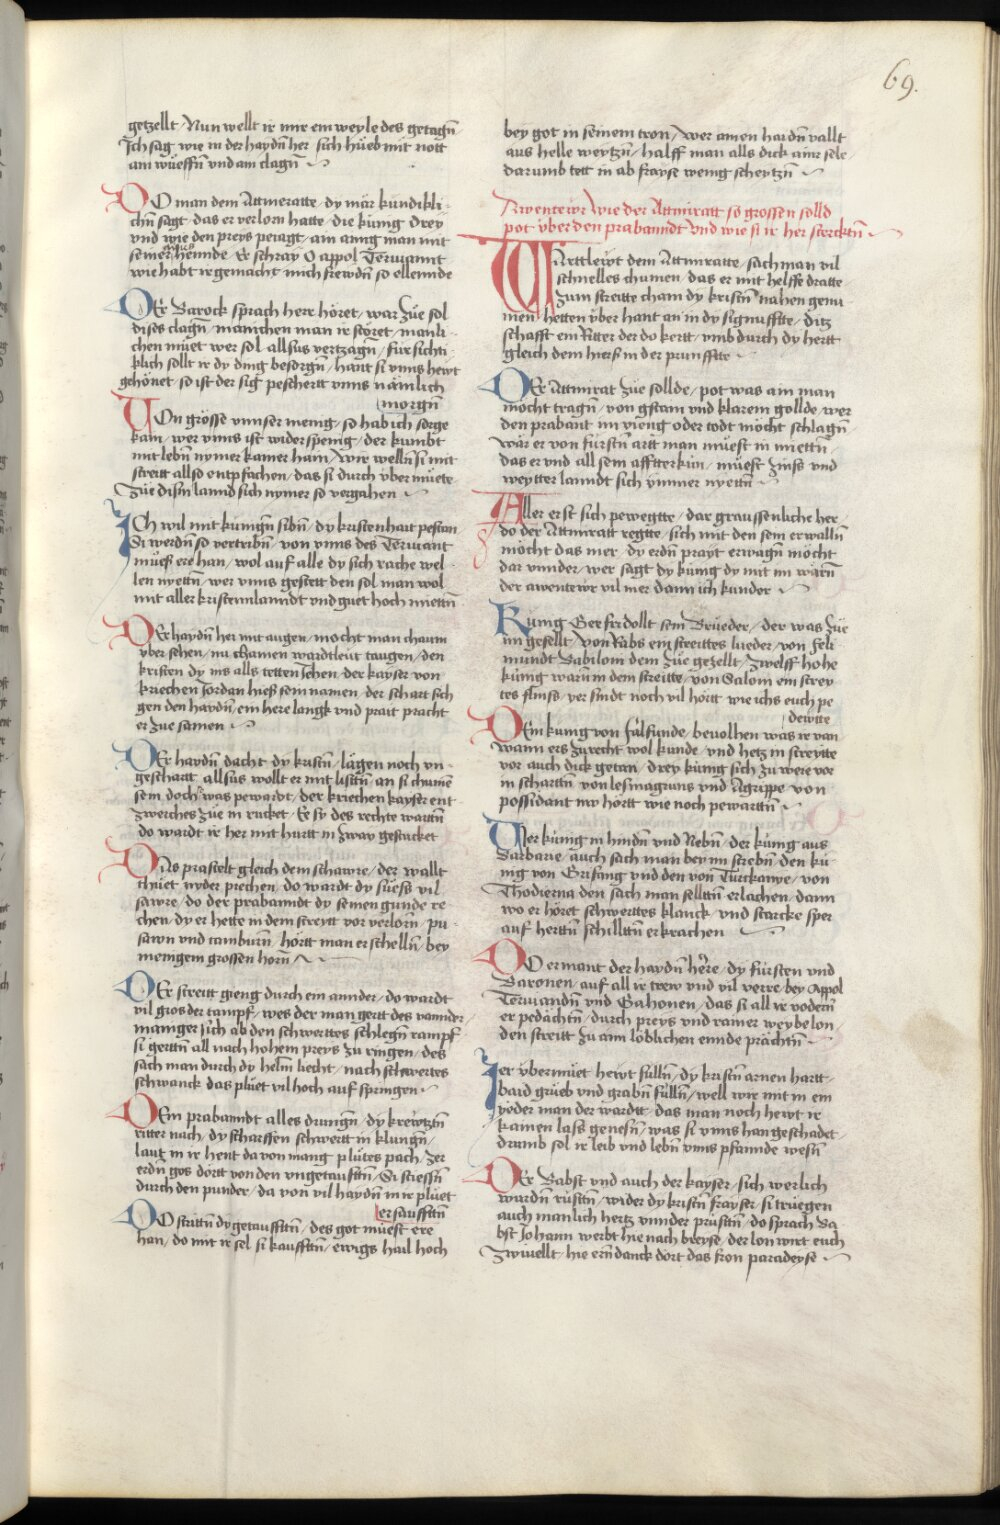 69.
getzellt / Nun wellt ir mir ein weyle des getagn̄
Ich sag wie in der haydn̄ her sich hüeb mit nott
ain wueffn̄ vnd ain clagn̄
DO man dem Attmeratte / dy mär kundikli-
chn̄ sagt / das er verlorn hatte / die kunig drey
vnd wie den preys peiagt / ain ainig man mit
seiner hennde / Er schray O appol Teruiannt
wie habt ir gemacht mich frewdn̄ so ellennde
DEr Barock sprach herr höret / war zue sol
dises clagn̄ / mänichen man ir störet / manli-
chen muet wer sol allsus vertzagn̄ / fursichti-
klich sollt ir dy ding besorgn̄ / hant si vnns hewt
gehönet / so ist der sig peschertt vnns nämlich
morgn̄
VOn grösse vnnser menig / so hab ich sorge
kain / wer vnns ist widerspenig / der kumbt
mit lebn̄ nymer kamer haim / wir welln̄ si mit
streitt allso entpfachen / das si durch vbermuete
Zue disn̄ lannd sich nymer so vergahen
ICh wil mit kunign̄ sibn̄ / dy kristenhait pestan
Si werdn̄ so vertribn̄ / von vnns des Teruiant
mues ere han / wol auf alle dy sich rache wel-
len nyettn̄ / wer vnns gestett den sol man wol
mit aller kristennlanndt vnd guet hoch miettn̄
DEr haydn̄ her mit augen / mocht man chaum
vber sehen / nu chamen wardtleut taugen / den
kristen dy ins alls tetten Jehen / der kayser von
kriechen Jordan hiess sein namen / der schart sich
gen den haydn̄ / ein here langk vnd prait pracht
er zue samen
DEr haydn̄ dacht dy kristn̄ / lägen noch vn-
geschartt / allsus wollt er mit listtn̄ / an si chumen
sein doch was pewardt / der kriechen kayser ent-
zwerches zue in rucket / Ee sy des rechte warttn̄
do wardt ir her mit hurtt in zway gestucket
DIns prastelt gleich dem schawre / der wallt
thuet nyder prechen / do wardt dy suess vil
sawre / do der prabanndt dy seinen gunde re-
chen / dy er hette in dem streytt vor verlorn̄ / pu-
sawn vnd tamburn̄ / hörtt man erschelln̄ / bey
menigem grossen horn̄
DEr streitt gieng durch ein annder / do wardt
vil gros der tampf / wes der man gertt des vannd er
mäniger sich ab den schwerttes schlegn̄ rampf
si gerttn̄ all nach hohem preys zu ringen / des
sach man durch dy helm̄ liecht / nach schwerttes
schwanck das pluet vil hoch auf springen
DEm prabanndt alles drungn̄ / dy krewtzn̄
ritter nach / dy scharffen schwertt in klungn̄ /
laut in ir hent da von manig plütes pach / zer
erdn̄ gos dortt von den vngetaufftn̄ / Si stiessn̄
durch den punder / da von vil haydn̄ in ir pluet
ersaufftn̄
DO strittn̄ dy getaufftn̄ / des got muest ere
han / do mit ir sel si kaufftn̄ / ewigs hail hoch
bey got in seinem tron / wer ainen haidn̄ vallt
aus helle weytzn̄ / halff man alls dick ainr sele
darumb tett in ab frayse wenig scheytzn̄
Awentewr wie der Attmiratt so grossen solld
pot vber den prabanndt vnd wie si ir her sterckttn̄
WArttlewt dem Attmiratte / sach man vil
schnelles chumen / das er mit helffe dratte
zum streitte cham dy kristn̄ nahen genu
men / hetten vber hant an in dy signuffte / ditz
schafft ein Ritter der do kertt / vmb durch dy hertt
gleich dem hirss in der prunffte
DEr Attmirat zue sollde / pot was ain man
möcht tragn̄ / von gstain vnd klarem gollde / wer
den prabant im vieng oder todt möcht schlagn̄
wär er von furstn̄ artt man muest in miettn̄ /
das er vnd all sein affterkun̄ / muest zinss vnd
weytter lanndt sich ymmer nyettn̄
ALler erst sich pewegtte / dar graussenliche her
do der Attmiratt regtte / sich mit den sein er walln̄
möcht das mer / dy erdn̄ prayt erwagn̄ möcht
dar vnnder / wer sagt dy kunig dy mit im warn̄
der awentewr vil mer dann ich kunder
KUnig Geefridollt sein Brueder / der was zue
im gesellt / von Rabs ein streittes lueder / von Feli
mundt Babilom dem zue gezellt / zwelff hohe
kunig warn̄ in dem streitte / von Salom ein strey
tes flins / der sindt noch vil hortt wie ichs euch pe
dewtte
DEm kunig von falsunde / bevolhen was ir van
wann ers zu recht wol kunde / vnd hetz in streytte
vor auch dick getan / drey kunig sich zu weie vor
in scharttn̄ / von lesmagruns vnd Agrippe / von
possidant nw hörtt wie noch pewarttn̄
DEr kunig in hindn̄ vnd Nebn̄ / der kunig aus
Barbare / auch sach man bey im strebn̄ / den ku
nig von Grifing vnd den von Turckanye / von
Thodierna den sach man selltn̄ erlachen / dann
wo er höret schwerttes klanck / vnd starcke sper
auf herttn̄ schilltn̄ erkrachen
DO ermant der haydn̄ here / dy fürsten vnd
Baronen / auf all ir trew vnd vil verre / bey Appol
Teruiandn̄ vnd Gahonen / das si all ir vodern̄
er pedächtn̄ / durch preys vnd rainer weybe lon /
den streitt zu ainn löblichen ennde prächtn̄
Ier vbermuet hewt fulln̄ / dy kristn̄ arnen hartt
baid grueb vnd grabn̄ fulln̄ / well wir mit in ein
yeder man der wardtt / das man noch hewt ir
kainen lass genesn̄ / was si vnns han geschadet
drumb sol ir leib vnd lebn̄ vnns pfannde wesn̄
DEr Babst vnd auch der kayser / sich werlich
wardn̄ rusttn̄ / wider dy kristn̄ frayser / si truegen
auch manlich hertz vnnder prusttn̄ / do sprach Ba
bst Johann werbt hie nach breyse / der lon wirt euch
zwiuellt / hie ern̄ danck dort das fron paradeyse